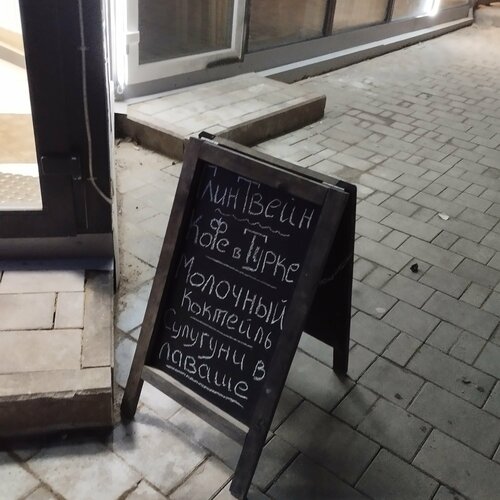 ГлинТвейн
Кофе в Турке
Молочный
коктейль
Сулугуни в
лаваше